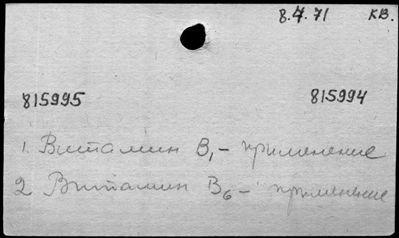 8.4.71 КВ.
815995 815994
1. Витамин В₁ – применение
2 Витамин В₆ – применение